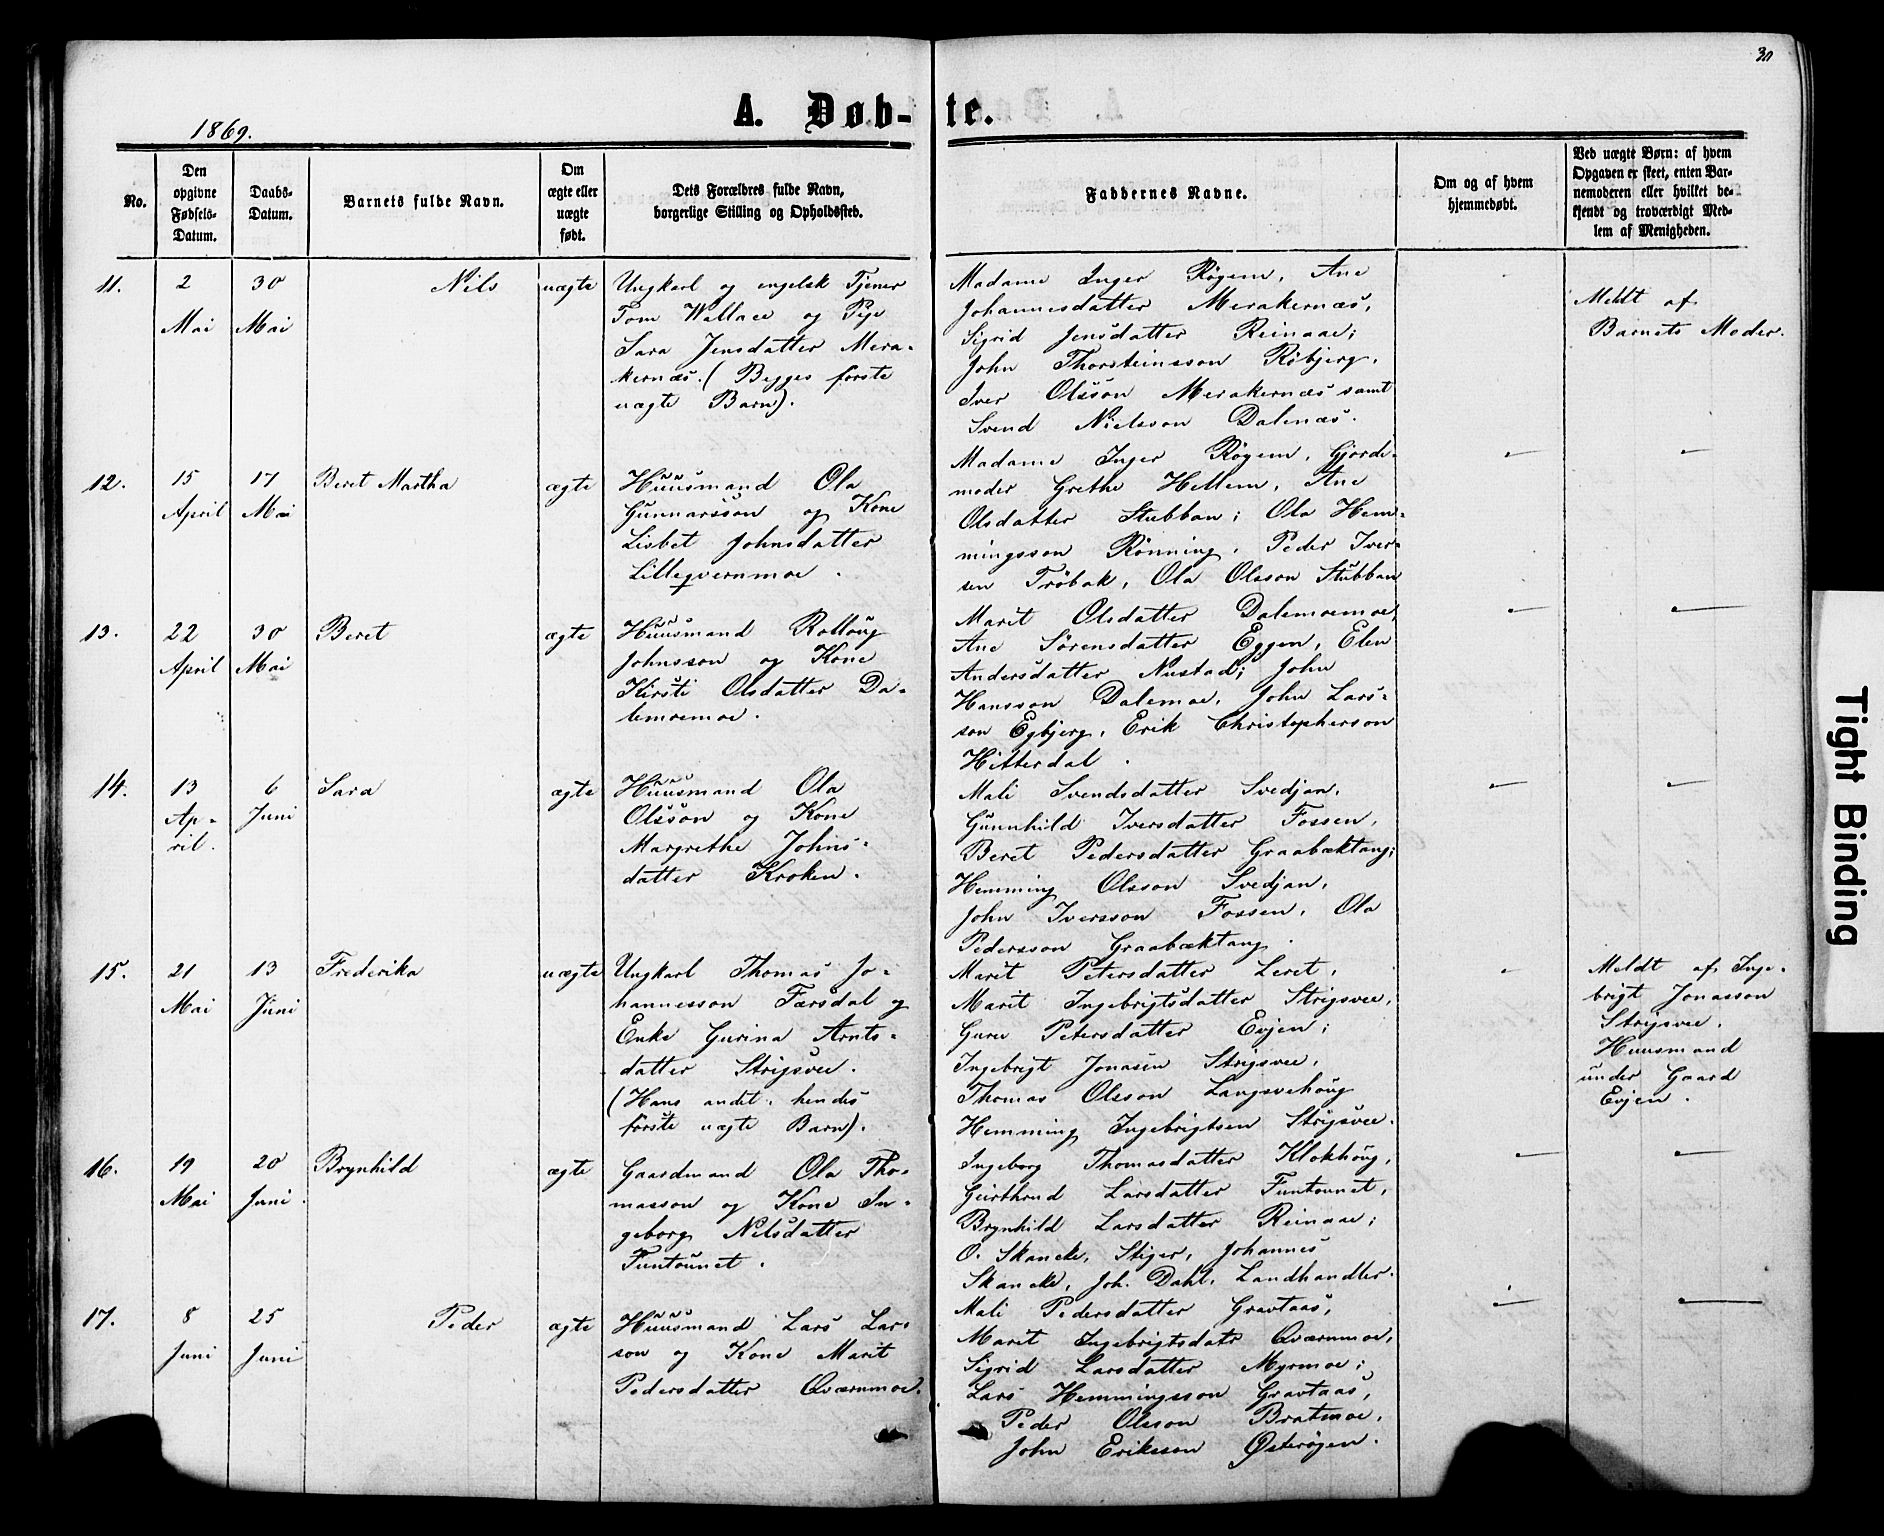 30
A. Døb-te.
1869.
No.
Den opgivne Fødsels-Datum.
Daabs-Datum.
Barnets fulde Navn.
Om ægte eller uægte født.
Dets Forældres fulde Navn, borgerlige Stilling og Opholdssted.
Faddernes Navne.
Om og af hvem hjemmedøbt.
Ved uægte Børn: af hvem Opgaven er skeet, enten Barnemoderen eller hvilket bekjendt og troværdigt Medlem af Menigheden.
11.
2 Mai
30 Mai
Nils
uægte
Ungkarl og engelsk Tjener
Tom Wallace og Pige
Sara Jensdatter Mera-
kernæs. (Begges første
uægte Barn).
Madame Inger Røgem, Ane
Johannesdatter Merakernæs,
Sigrid Jensdatter Reinaae;
John Thorsteinsson Røbjerg,
Iver Olsson Merakernæs samt
Svend Nielsson Dalenæs.
Meldt af
Barnets Moder.
12.
15 April
17 Mai
Beret Martha
ægte
Huusmand Ola
Gunnarsson og Kone
Lisbet Johnsdatter
Lillegvernmoe.
Madame Inger Røgem, Gjorde-
moder Grethe Hellem, Ane
Olsdatter Stubban; Ola Hem-
mingsson Rönning, Peder Iver-
sen Tröbak, Ola Olsson Stubban
13.
22 April
30 Mai
Beret
ægte
Huusmand Rolloug
Johnsson og Kone
Kirsti Olsdatter Da-
lemoemoe.
Marit Olsdatter Dalemoemoe,
Ane Sörensdatter Eggen, Elen
Andersdatter Nustad; John
Hansson Dalemoe, John Lars-
son Egbjerg, Erik Christopherson
Hitterdal.
14.
13 Ap-
ril.
6 Juni
Sara
ægte
Huusmand Ola
Olsson og Kone
Margrethe Johns-
datter Kroken.
Mali Svendsdatter Svedjan,
Gunnhild Iversdatter Fossen,
Beret Pedersdatter Graabæktang;
Hemming Olsson Svedjan,
John Iversson Fossen, Ola
Pedersson Graabæktang.
15.
21 Mai
13 Juni
Frederika
uægte
Ungkarl Thomas Jo-
hannesson Færsdal og
Enke Gurina Arnts-
datter Strigsvee.
(Hans andet, hendes
første uægte Barn).
Marit Petersdatter Leret,
Marit Ingebrigtsdatter Strigsvee,
Guru Petersdatter Evjen;
Ingebrigt Jonasen Strigsvee,
Thomas Olsson Langsvehoug
Hemming Ingebrigtsen Strigsvee.
Meldt af Inge-
brigt Jonasson
Strigsvee,
Huusmand
under Gaard
Evjen.
16.
19 Mai
20 Juni.
Brynhild
ægte
Gaardmand Ola Tho-
masson og Kone In-
geborg Nilsdatter
Funtounet.
Ingeborg Thomasdatter Klokhoug,
Geirthrud Larsdatter Funtounet,
Brynhild Larsdatter Reinaae;
O. Skancke, Stiger, Johannes
Skancke, Joh. Dahl, Landhandler.
17.
8 Juni
25 Juni
Peder
ægte
Huusmand Lars Lar-
son og Kone Marit
Pedersdatter Qværnmoe.
Mali Pedersdatter Gravtaas,
Marit Ingebrigtsdatr Qværnmoe,
Sigrid Larsdatter Myrmoe;
Lars Hemmingsson Gravtaas,
Peder Olsson Bratmoe,
John Eriksson Østerøgen.
Tight Binding